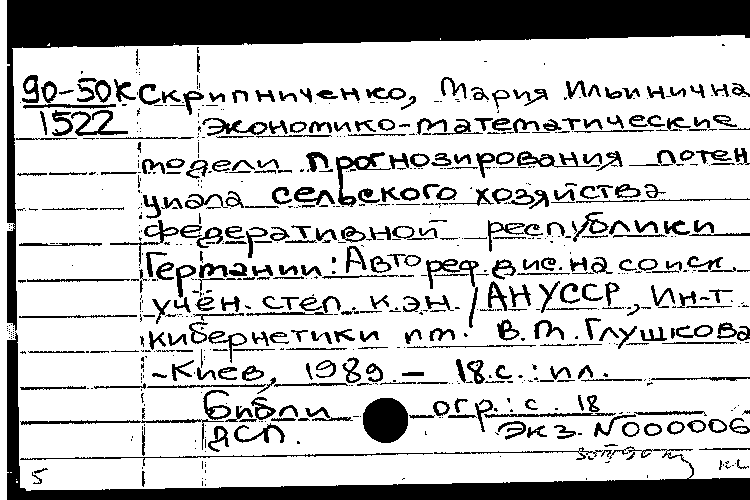 90-50К Скрипниченко, Мария Ильинична
1522 Экономико-математические
модели прогнозирования потен
циала сельского хозяйства
федеративной республики
Германии: Автореф. дис. на соиск.
учён. степ. к.эн. / АН УССР, Ин-т
кибернетики им. В.М. Глушкова
-Киев, 1989. - 18.с.: ил.
Библи огр.: с. 18
ДСП. Экз. N000006
5